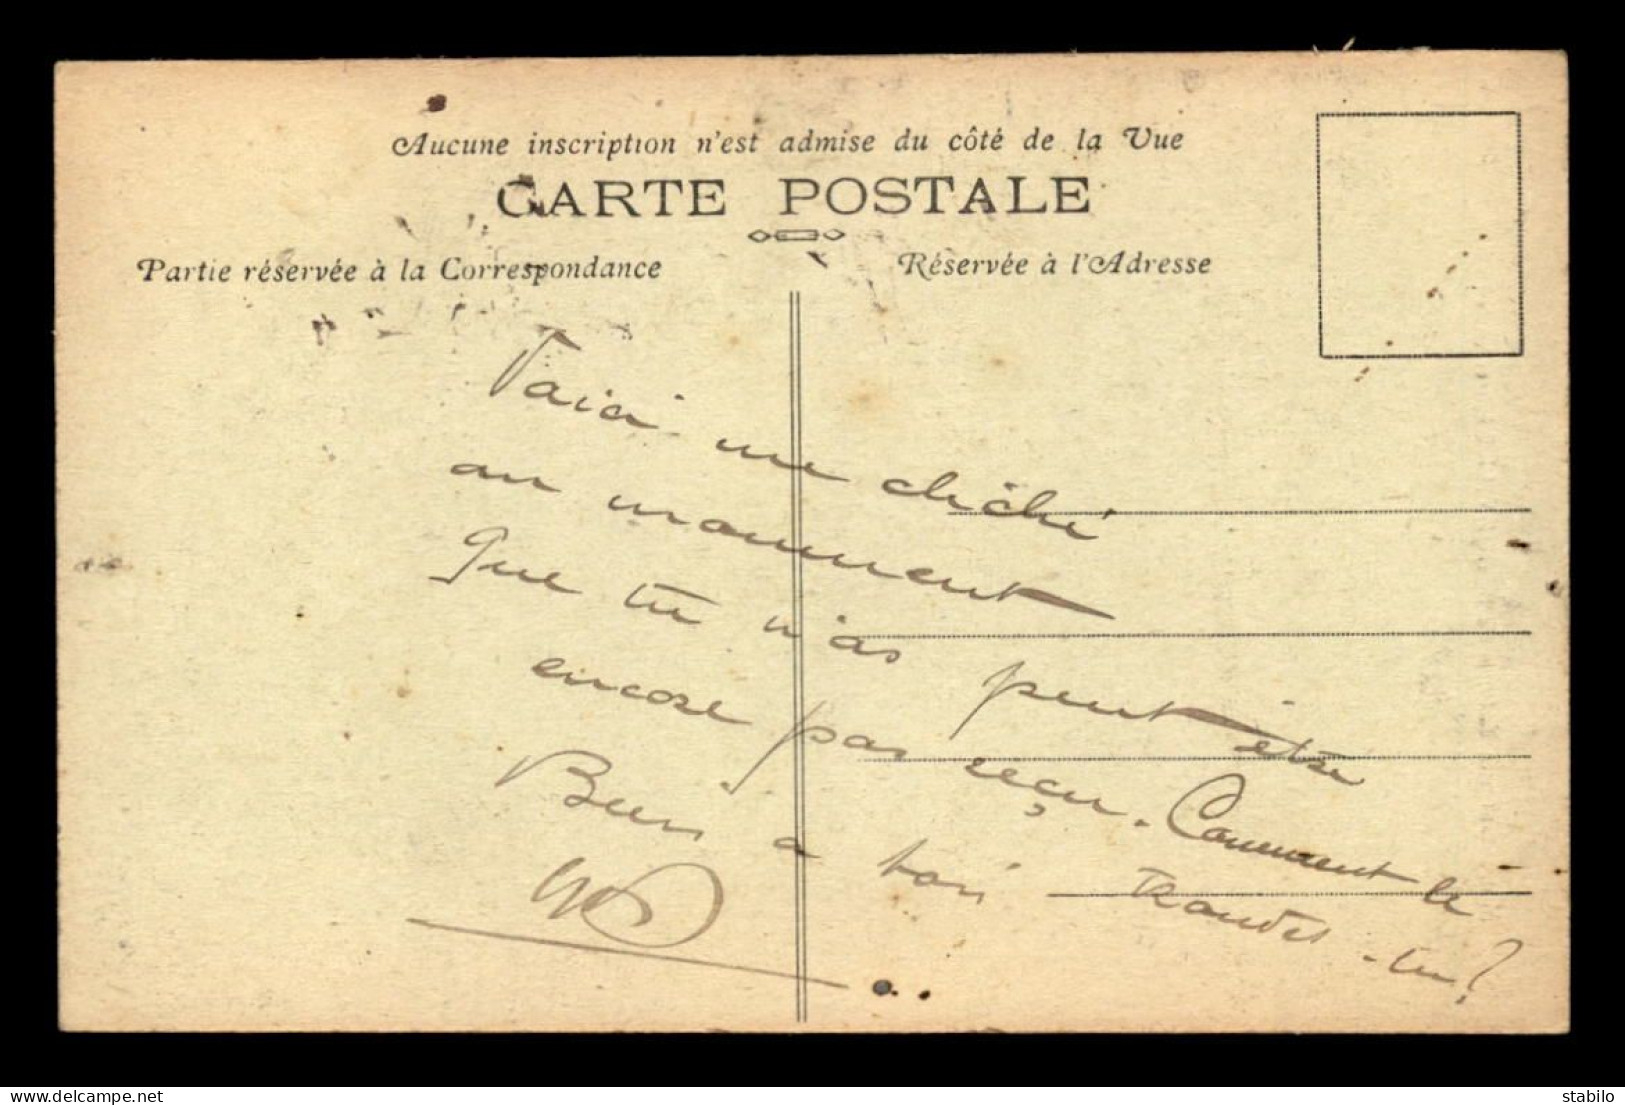 Aucune inscription n'est admise du côté de la Vue
CARTE POSTALE
Partie réservée à la Correspondance
Réservée à l'Adresse
Voici une cliché
au monument
que tu n'as peut être
encore pas reçu. Comment le
Bien a toi
-tu?
delcampe.net
stabilo